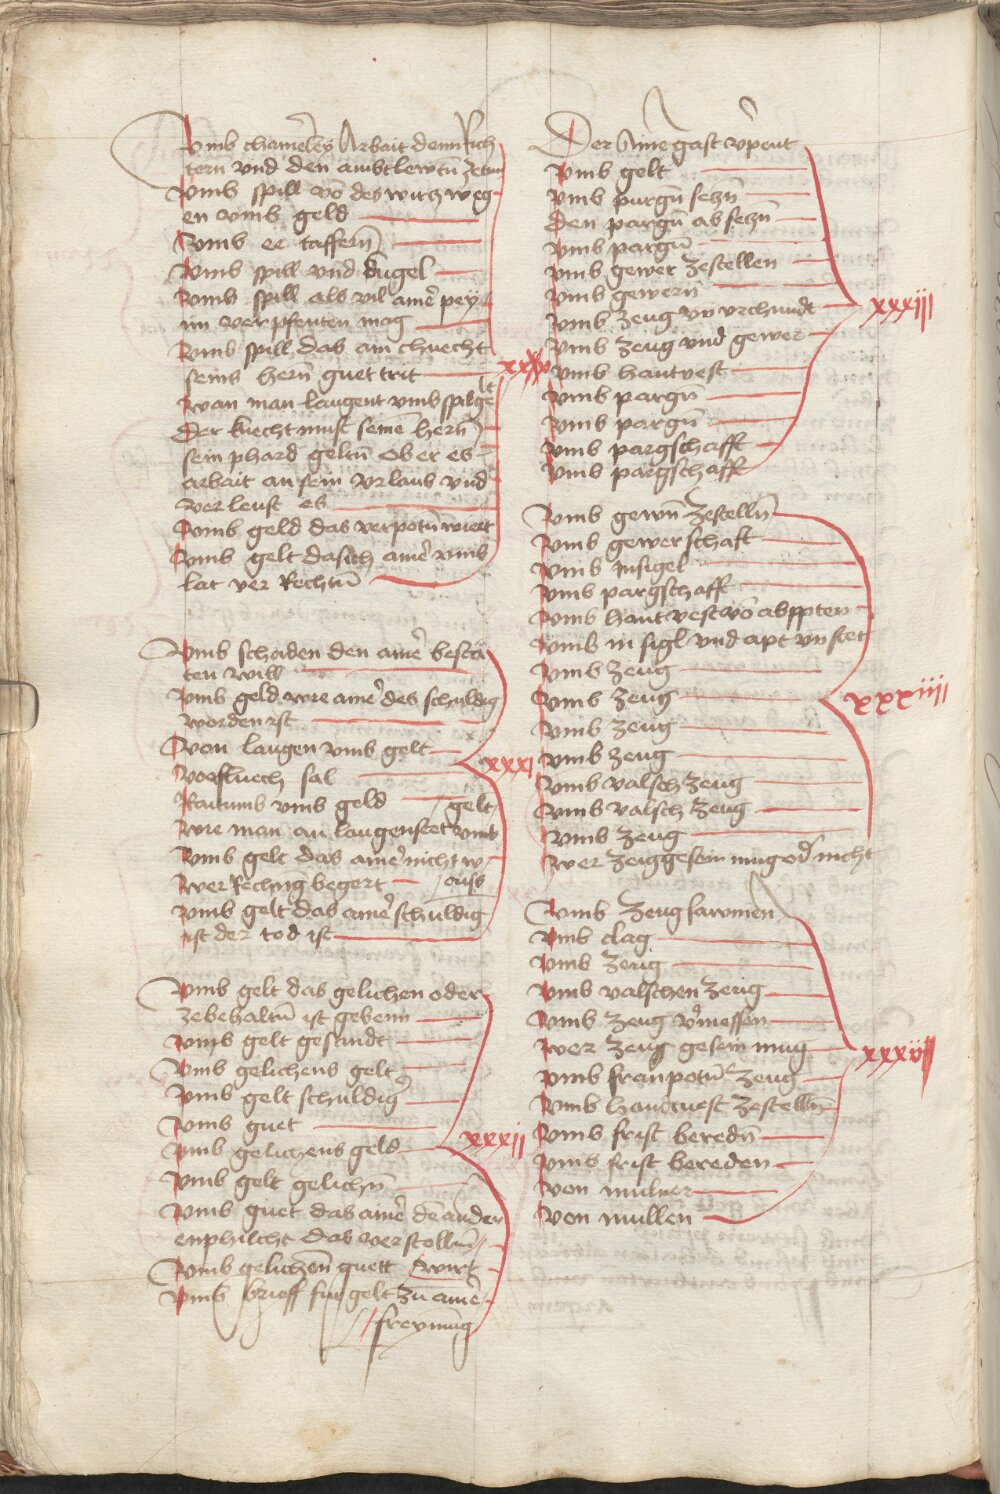 Umb chamerley Arbait denn Rich
tern vnd den ambtlewtn̄
Vmb spill vō des wirch weg
en vmb geld
Vmb ee taffern̄
Vmb spill vnd kugel
Vmb spill als vil ainē pey
im verpfenten mag
Vmb spill das ain chnecht
seins hern̄ guet trit
xxx
wan man laugent vmb spilgelt
Der knecht muß seinē hern̄
sein phard geltn̄ ob er es
arbait an sein vrlaub vnd
verleust es
Vmb geld das verpotn̄ wiert
Vmb gelt das ich ainē vmb
lat ver Rechtn̄
Vmb schaden den ainē bestā
ten will
Vmb geld wie ainē des schuldig
worden ist
Von laugen vmb gelt
sal
xxxi
vmb geld
wie man an laugenstet vmb gelt
Vmb gelt das ainē nicht w
wer Rechnḡ begert
Vmb gelt das ainē schuldig
ist der tod ist
Vmb gelt das gelichen oder
zebehaltn̄ ist gebenn
Vmb gelt gesandt
Vmb gelichens gelt
Vmb gelt schuldig
Vmb guet
Vmb gelichens geld
xxxii
Vmb gelt gelichn̄
Vmb guet das ainē dē ander
enphilcht das verstolln̄
wirt
Vmb gelichen̄ guett
Vmb brieff fur gelt zu ainē
freymūg
Der Ainē gast v̓peut
Vmb gelt
Vmb purgn̄ seczn̄
Den pargn̄ ab seczn̄
Vmb pargn̄
Vmb gewer zestellen
Vmb gewern̄
Vmb zeug vn̄ vrchundt
xxxiii
Vmb zeug vnd gewer
Vmb hantvest
Vmb pargn̄
Vmb pargn̄
Vmb pargschafft
Vmb pargschafft
Vmb gewn̄ zestelln̄
Vmb gewerschaft
Vmb Insigel
Vmb pargschafft
Vmb hantvest vō abppten
Vmb in sigl vnd apt vn̄ stet
Vmb zeug
Vmb zeug
xxxiiii
Vmb zeug
Vmb zeug
Vmb valsch zeug
Vmb valsch zeug
Vmb zeug
wer zeug gesein mug od̓ nicht
Vmb zeug sawmen
Vmb clag
Vmb zeug
Vmb valschen zeug
Vmb zeug v̓messen
wer zeug gesein mug
Vmb zeug
Vmb hantuest zestelln̄
Vmb frist beredn̄
Vmb frist bereden
Von mulner
Von mullen